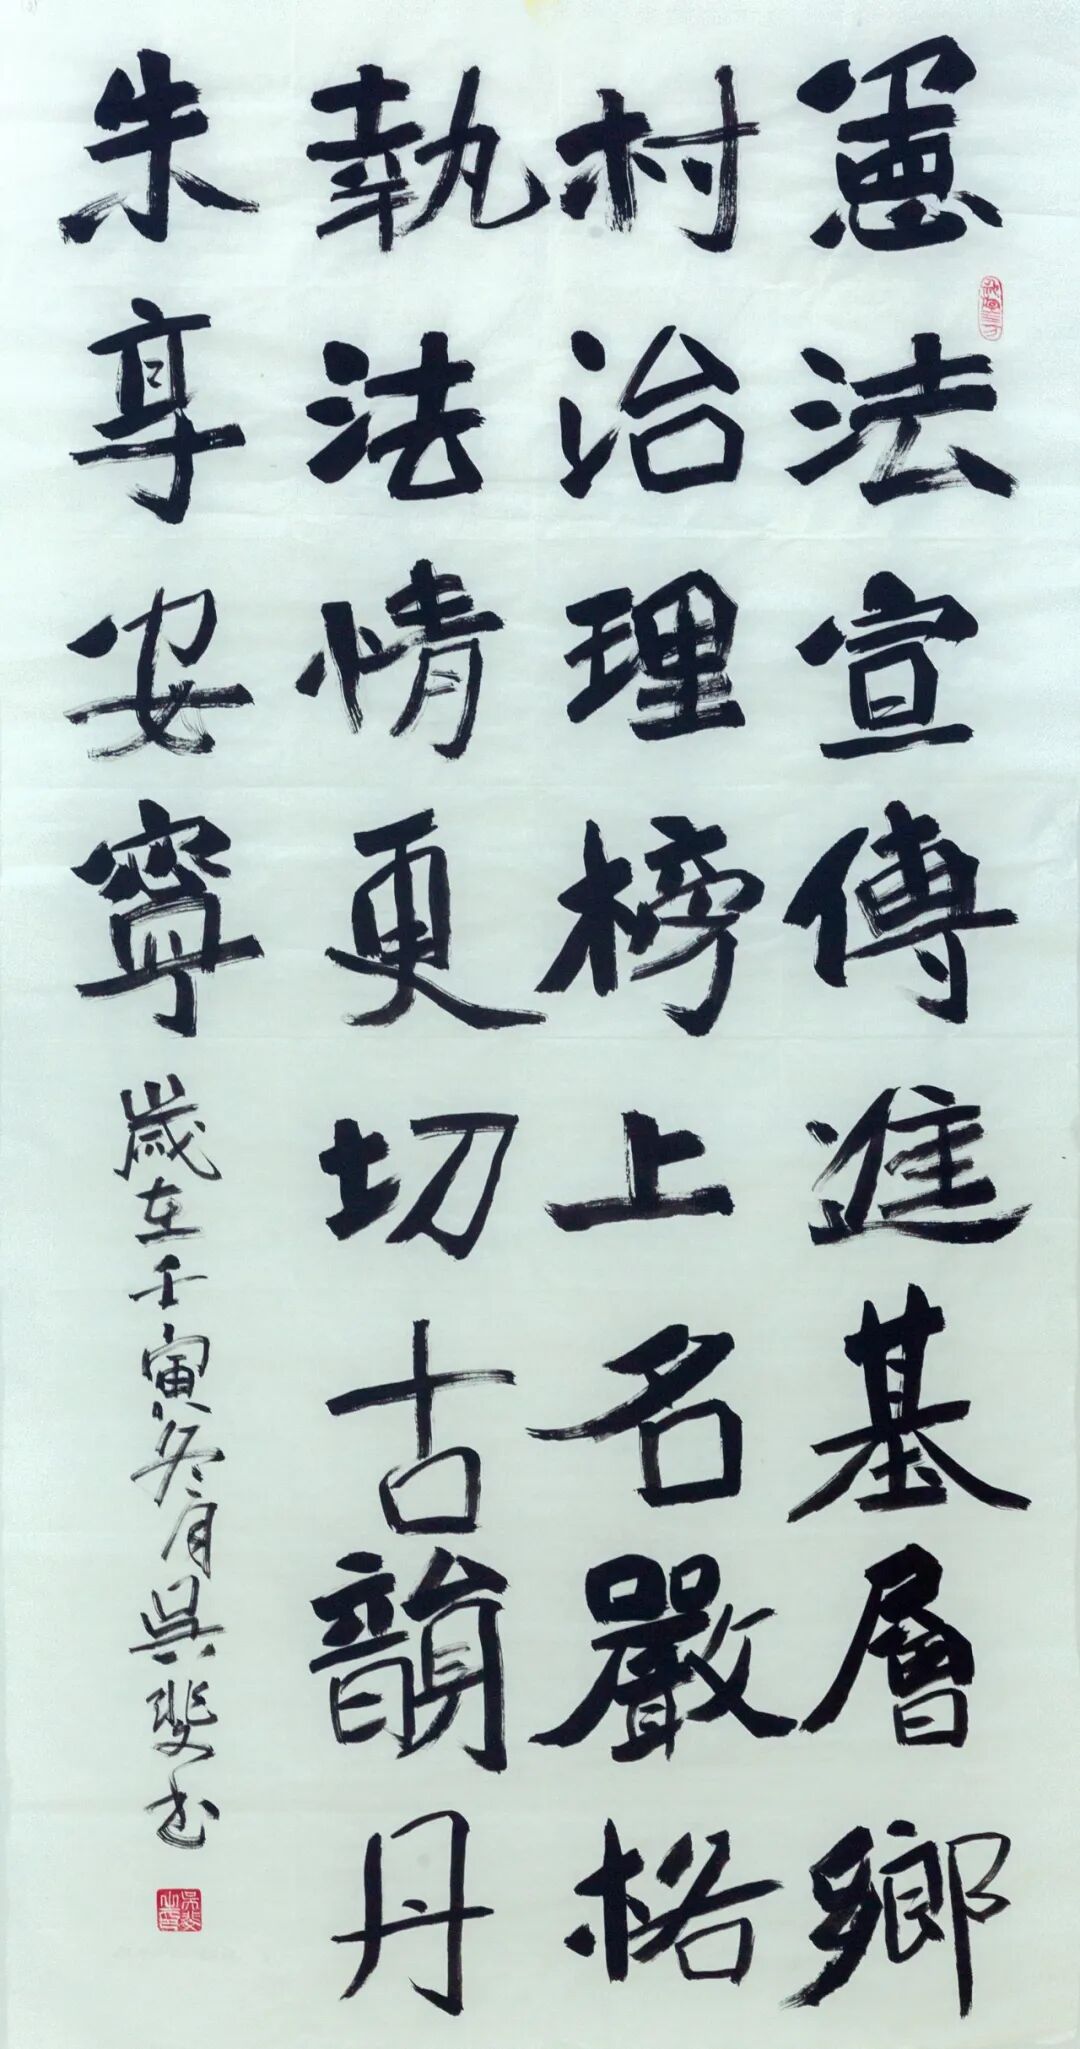 憲法宣傳進基層鄉
村治理榜上名嚴格
執法情更切古韻丹
朱享安寧
歲在壬寅冬月吳斐书